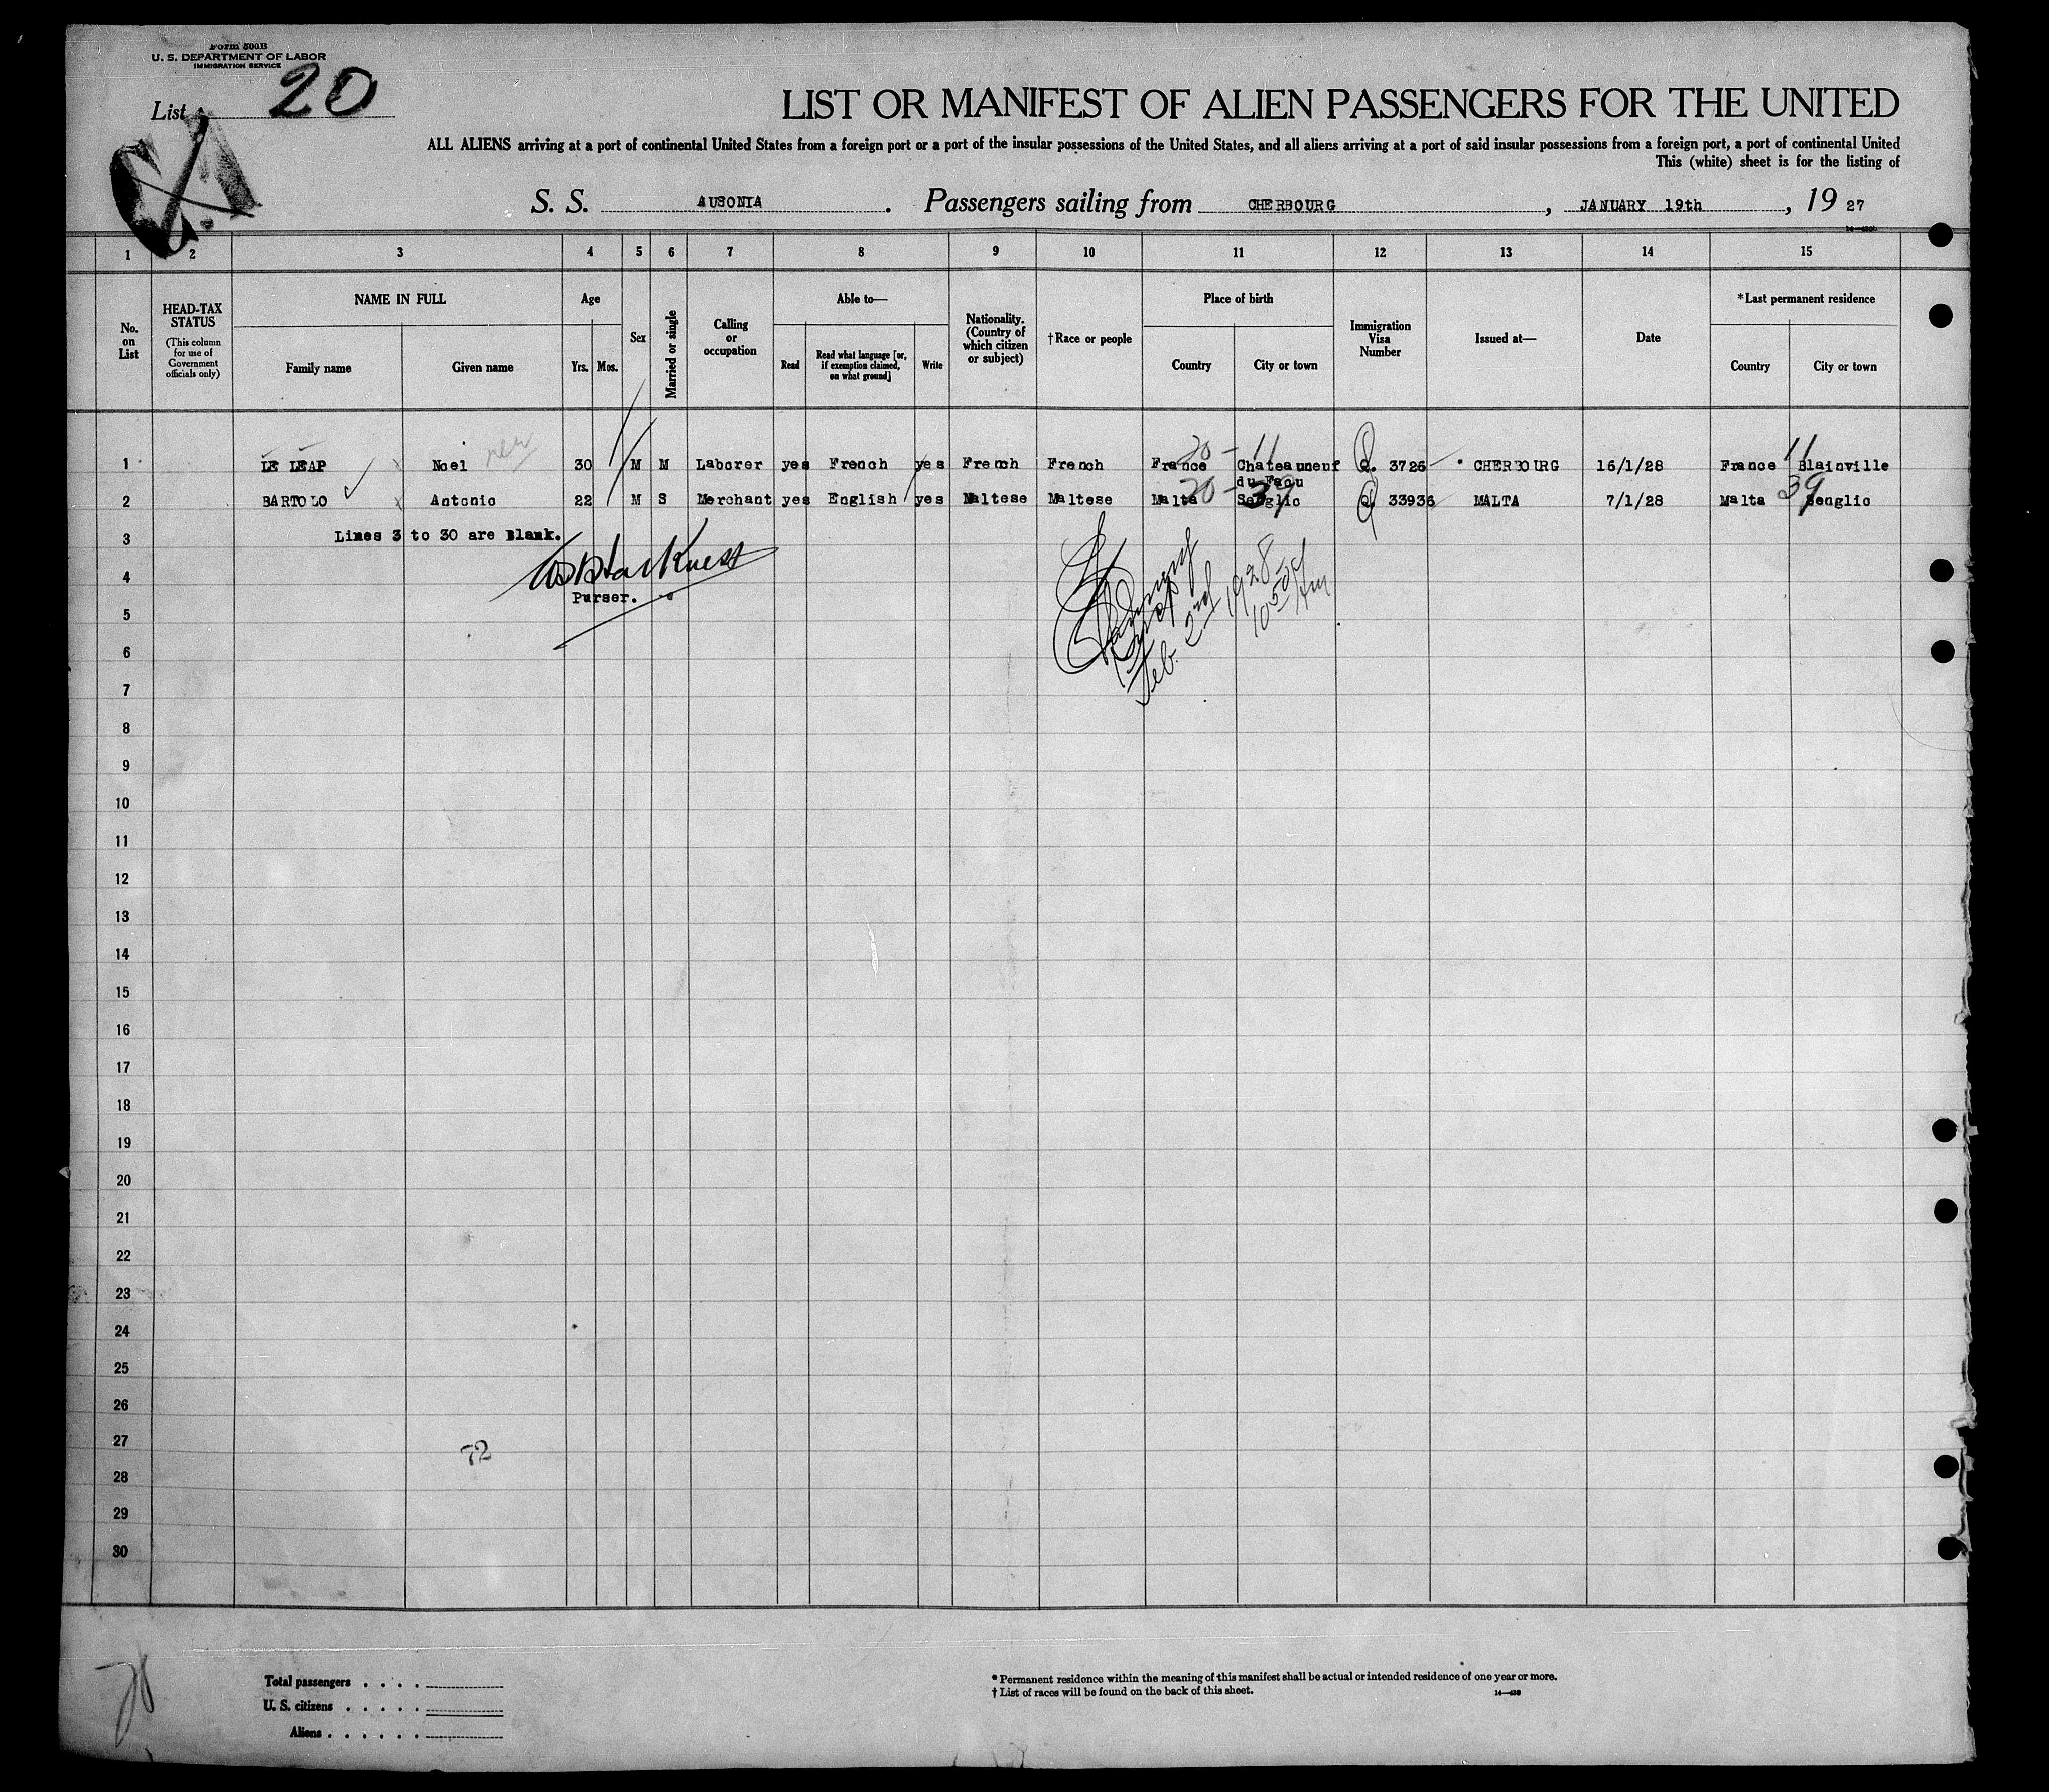 Form 500B
U. S. DEPARTMENT OF LABOR
IMMIGRATION SERVICE
List 20
LIST OR MANIFEST OF ALIEN PASSENGERS FOR THE UNITED
ALL ALIENS arriving at a port of continental United States from a foreign port or a port of the insular possessions of the United States, and all aliens arriving at a port of said insular possessions from a foreign port, a port of continental United
This (white) sheet is for the listing of
S. S. AUSONIA . Passengers sailing from CHERBOURG , JANUARY 19th , 19 27
1 2 3 4 5 6 7 8 9 10 11 12 13 14 15
No. on List
HEAD-TAX STATUS
(This column for use of Government officials only)
NAME IN FULL
Family name
Given name
Age
Yrs. Mos.
Sex
Married or single
Calling or occupation
Able to—
Read
Read what language [or, if exemption claimed, on what ground]
Write
Nationality. (Country of which citizen or subject)
†Race or people
Place of birth
Country
City or town
Immigration Visa Number
Issued at—
Date
*Last permanent residence
Country
City or town
20 - 11 11
1 LE LEAP Noel 30 M M Laborer yes French yes French French France Chateauneuf Q. 3726 CHERBOURG 16/1/28 France Blainville
du Faou
20 - 39 39
2 BARTOLO Antonio 22 M S Merchant yes English yes Maltese Maltese Malta Senglic Q. 33936 MALTA 7/1/28 Malta Senglic
3 Lines 3 to 30 are Blank.
4
Purser.
Feb. 2nd 1928
10 50 Am
5
6
7
8
9
10
11
12
13
14
15
16
17
18
19
20
21
22
23
24
25
26
27
72
28
29
30
Total passengers . . . .
U. S. citizens . . . . .
Aliens . . . . . .
* Permanent residence within the meaning of this manifest shall be actual or intended residence of one year or more.
† List of races will be found on the back of this sheet.